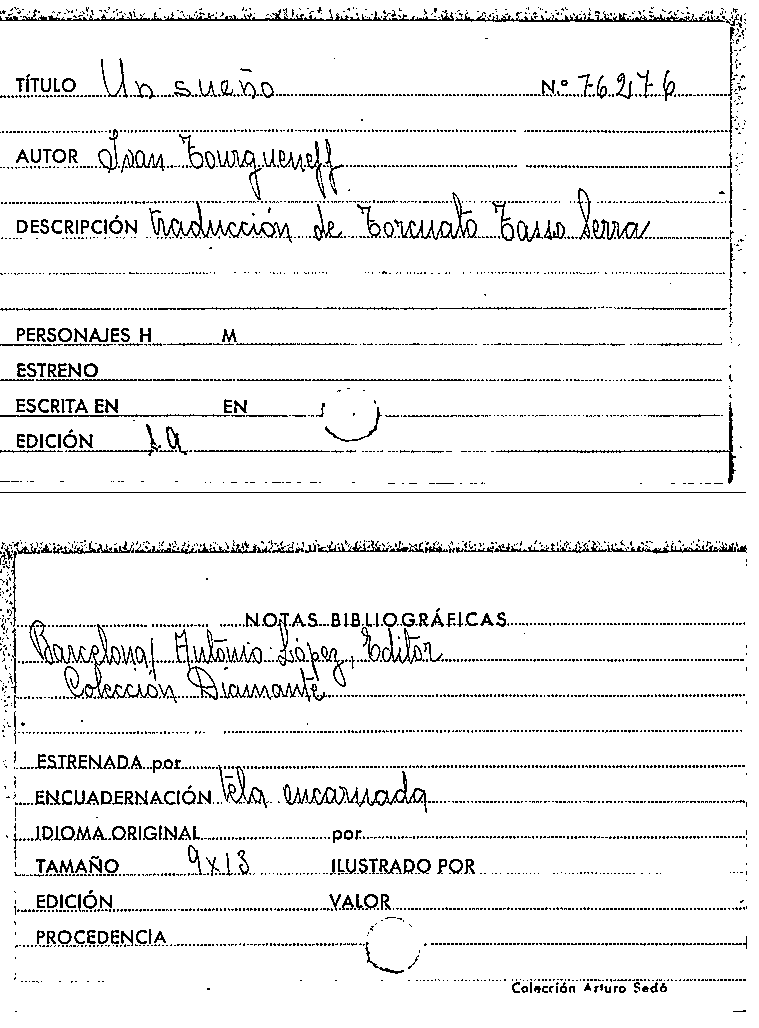 TÍTULO Un sueño N.º 76276
AUTOR Ivan Tourgueneff
DESCRIPCIÓN traducción de Torcuato Tasso Serra
PERSONAJES H M
ESTRENO
ESCRITA EN EN
EDICIÓN 1a
NOTAS BIBLIOGRÁFICAS
Barcelona/ Antonio López, Editor
Colección Diamante
ESTRENADA por
ENCUADERNACIÓN tela encarnada
IDIOMA ORIGINAL por
TAMAÑO 9x13 ILUSTRADO POR
EDICIÓN VALOR
PROCEDENCIA
Colección Arturo Sedó